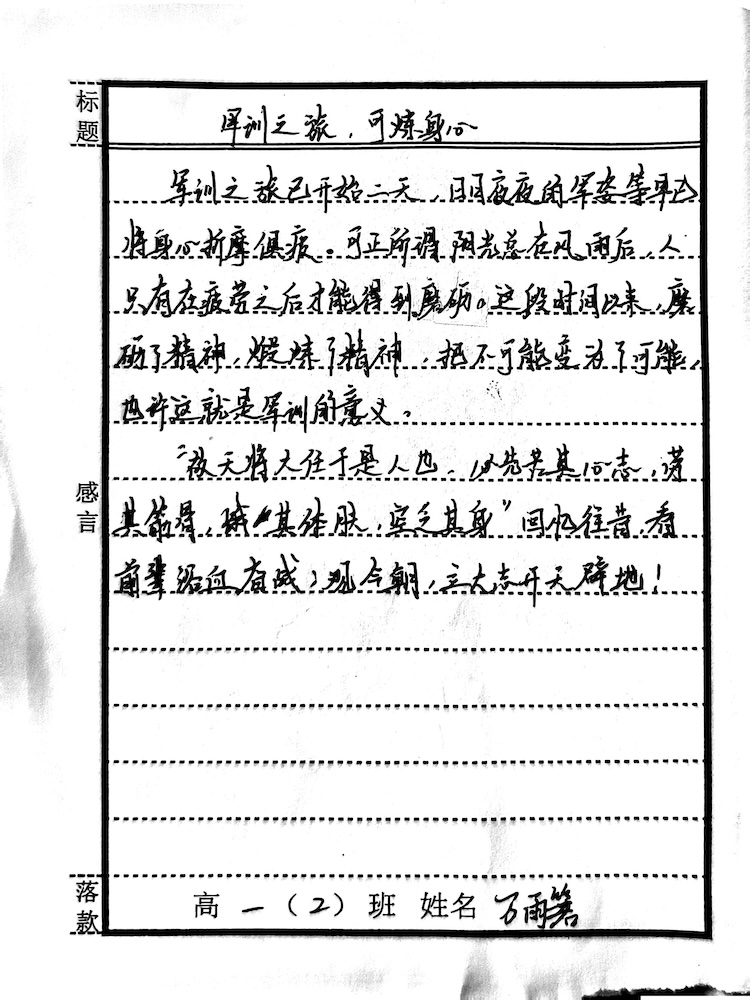 标题
军训之旅，可炼身心
军训之旅已开始二天，日日夜夜的军姿等早已
将身心折摩俱疲。可正所谓阳光总在风雨后，人
只有在疲劳之后才能得到磨砺。这段时间以来，磨
砺了精神，煅炼了精神，把不可能变为了可能，
也许这就是军训的意义。
“故天将大任于是人也，必先苦其心志，劳
其筋骨，饿其体肤，空乏其身”回忆往昔，看
前辈浴血奋战；观今朝，立大志开天辟地！
感言
落款
高一（2）班 姓名 万雨箬